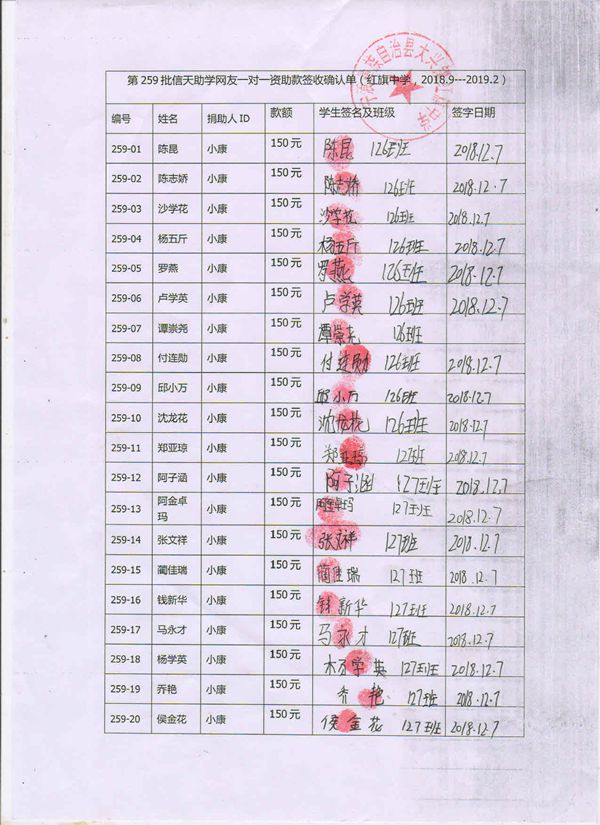 第259批信天助学网友一对一资助款签收确认单（红旗中学，2018.9---2019.2）
编号 姓名 捐助人ID 款额 学生签名及班级 签字日期
259-01 陈昆 小康 150元 陈昆 126班 2018.12.7
259-02 陈志娇 小康 150元 陈志娇 126班 2018.12.7
259-03 沙学花 小康 150元 沙学花 126班 2018.12.7
259-04 杨五斤 小康 150元 杨五斤 126班 2018.12.7
259-05 罗燕 小康 150元 罗燕 126班 2018.12.7
259-06 卢学英 小康 150元 卢学英 126班 2018.12.7
259-07 谭崇尧 小康 150元 谭崇尧 126班
259-08 付连勋 小康 150元 付连勋 126班 2018.12.7
259-09 邱小万 小康 150元 邱小万 126班 2018.12.7
259-10 沈龙花 小康 150元 沈龙花 126班 2018.12.7
259-11 郑亚琼 小康 150元 郑亚琼 127班 2018.12.7
259-12 阿子涵 小康 150元 阿子涵 127班 2018.12.7
259-13 阿金卓玛 小康 150元 阿金卓玛 127班 2018.12.7
259-14 张文祥 小康 150元 张文祥 127班 2018.12.7
259-15 蔺佳瑞 小康 150元 蔺佳瑞 127班 2018.12.7
259-16 钱新华 小康 150元 钱新华 127班 2018.12.7
259-17 马永才 小康 150元 马永才 127班 2018.12.7
259-18 杨学英 小康 150元 杨学英 127班 2018.12.7
259-19 乔艳 小康 150元 乔艳 127班 2018.12.7
259-20 侯金花 小康 150元 侯金花 127班 2018.12.7